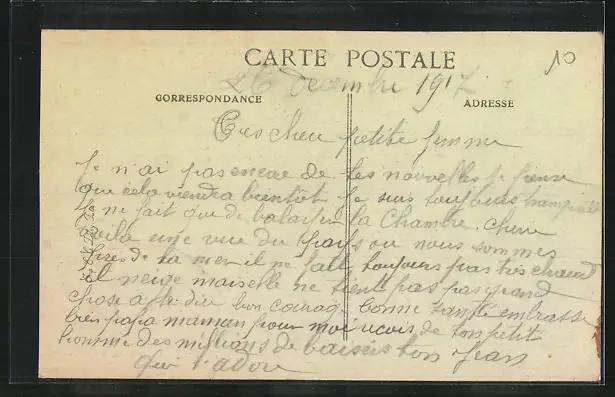 10
CARTE POSTALE
26 decembre 1917
CORRESPONDANCE
ADRESSE
Tres cheu petite femme
Je n'ai pas encore de tes nouvelles je pense
que cela viendra bientôt je suis toujours tranquille
Je ne fait que de balailler la Chambre. chere
voila une vue du pays ou nous sommes
pres de la mer il ne fait toujours pas tres chaud
il neige mais elle ne tient pas pas grand
chose a te dire bon courage bonne sante embrasse
bien papa maman pour moi recois de ton petit
homme des millions de baisers ton Jean
qui t'adore